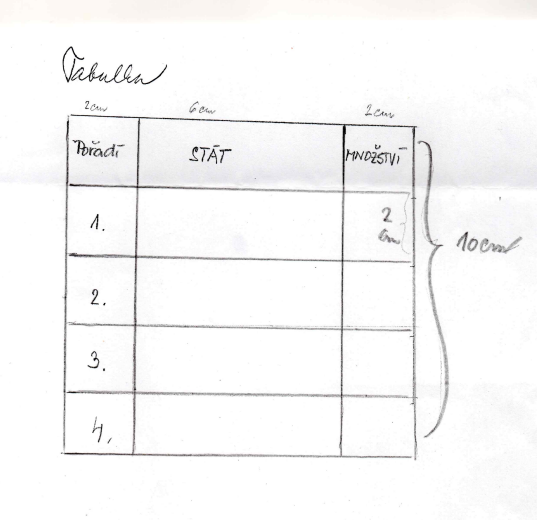 Tabulka
2cm 6cm 2cm
Pořadí STÁT MNOŽSTVÍ
1. 2
cm
10cm
2.
3.
4.